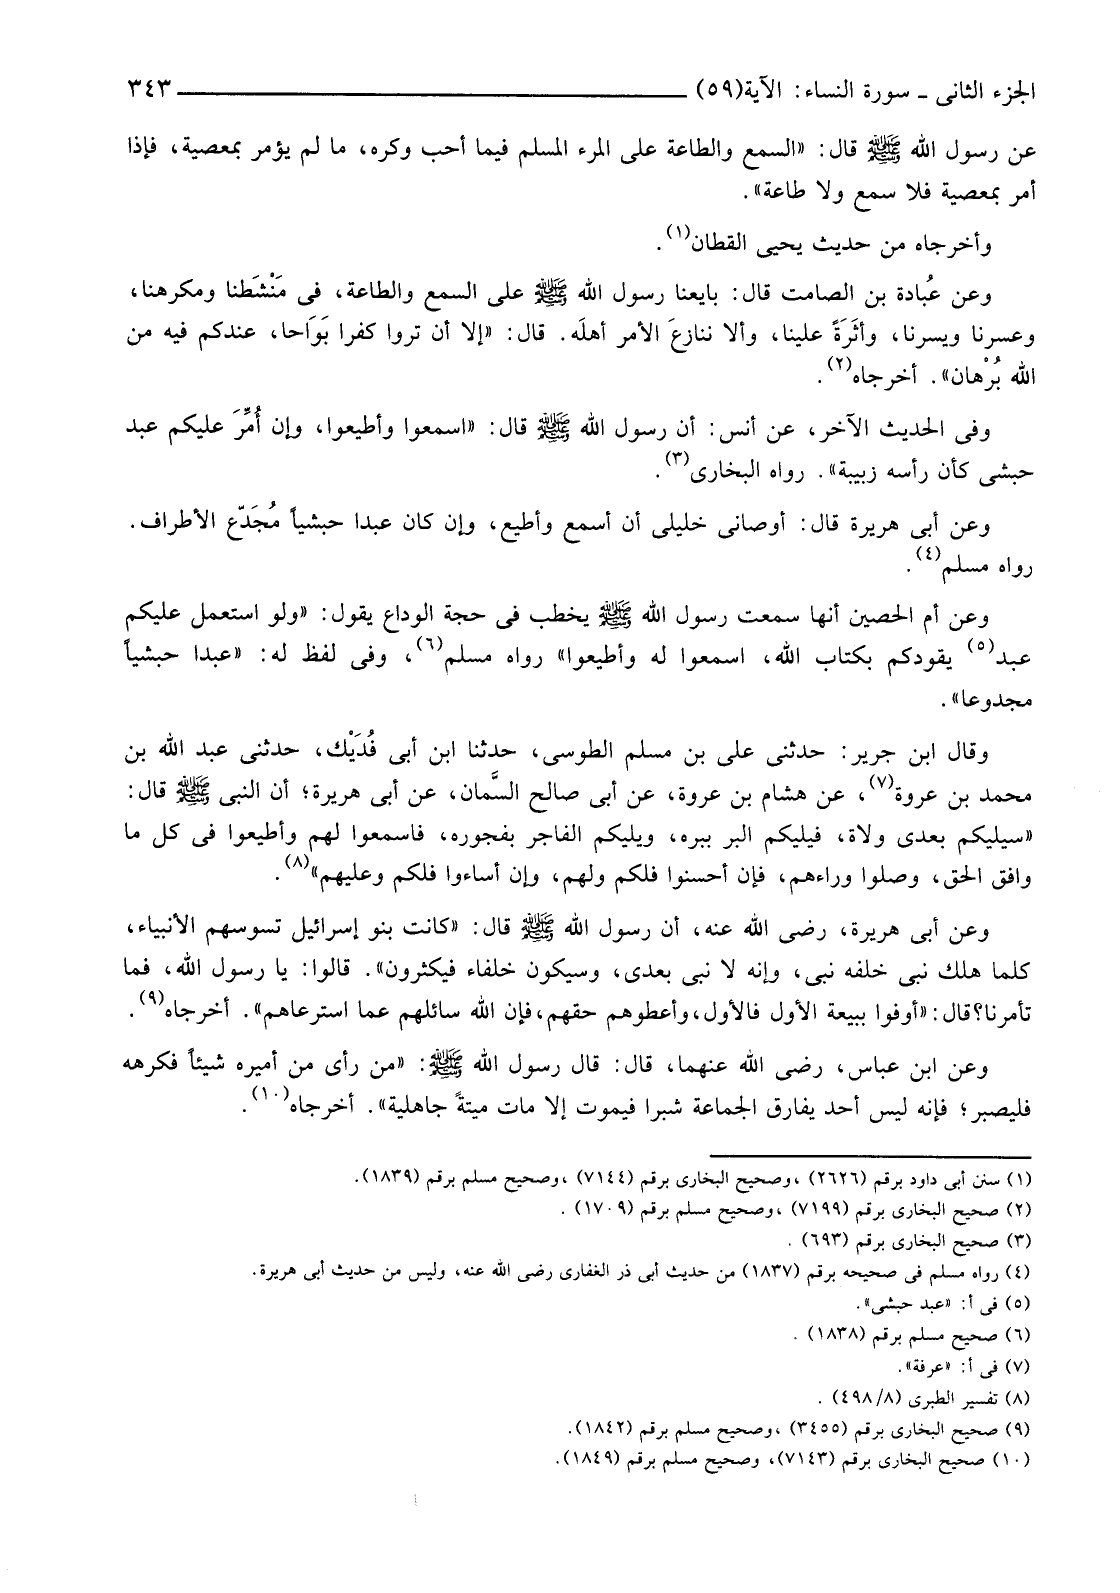 الجزء الثانى ـ سورة النساء: الآية(٥٩) ٣٤٣
عن رسول الله ﷺ قال: «السمع والطاعة على المرء المسلم فيما أحب وكره، ما لم يؤمر بمعصية، فإذا
أمر بمعصية فلا سمع ولا طاعة».
وأخرجاه من حديث يحيى القطان(١).
وعن عُبادة بن الصامت قال: بايعنا رسول الله ﷺ على السمع والطاعة، فى مَنْشَطنا ومكرهنا،
وعسرنا ويسرنا، وأثَرَةً علينا، وألا ننازعَ الأمر أهلَه. قال: «إلا أن تروا كفرا بَوَاحا، عندكم فيه من
الله بُرْهان». أخرجاه(٢).
وفى الحديث الآخر، عن أنس: أن رسول الله ﷺ قال: «اسمعوا وأطيعوا، وإن أُمِّرَ عليكم عبد
حبشى كأن رأسه زبيبة». رواه البخارى(٣).
وعن أبى هريرة قال: أوصانى خليلى أن أسمع وأطيع، وإن كان عبدا حبشياً مُجَدّع الأطراف.
رواه مسلم(٤).
وعن أم الحصين أنها سمعت رسول الله ﷺ يخطب فى حجة الوداع يقول: «ولو استعمل عليكم
عبد(٥) يقودكم بكتاب الله، اسمعوا له وأطيعوا» رواه مسلم(٦)، وفى لفظ له: «عبدا حبشياً
مجدوعا».
وقال ابن جرير: حدثنى على بن مسلم الطوسى، حدثنا ابن أبى فُدَيْك، حدثنى عبد الله بن
محمد بن عروة(٧)، عن هشام بن عروة، عن أبى صالح السَّمان، عن أبى هريرة؛ أن النبى ﷺ قال:
«سيليكم بعدى ولاة، فيليكم البر ببره، ويليكم الفاجر بفجوره، فاسمعوا لهم وأطيعوا فى كل ما
وافق الحق، وصلوا وراءهم، فإن أحسنوا فلكم ولهم، وإن أساءوا فلكم وعليهم»(٨).
وعن أبى هريرة، رضى الله عنه، أن رسول الله ﷺ قال: «كانت بنو إسرائيل تسوسهم الأنبياء،
كلما هلك نبى خلفه نبى، وإنه لا نبى بعدى، وسيكون خلفاء فيكثرون». قالوا: يا رسول الله، فما
تأمرنا؟قال:«أوفوا ببيعة الأول فالأول،وأعطوهم حقهم،فإن الله سائلهم عما استرعاهم». أخرجاه(٩).
وعن ابن عباس، رضى الله عنهما، قال: قال رسول الله ﷺ: «من رأى من أميره شيئاً فكرهه
فليصبر؛ فإنه ليس أحد يفارق الجماعة شبرا فيموت إلا مات ميتةً جاهلية». أخرجاه(١٠).
(١) سنن أبى داود برقم (٢٦٢٦) ،وصحيح البخارى برقم (٧١٤٤) ،وصحيح مسلم برقم (١٨٣٩).
(٢) صحيح البخارى برقم (٧١٩٩) ،وصحيح مسلم برقم (١٧٠٩) .
(٣) صحيح البخارى برقم (٦٩٣) .
(٤) رواه مسلم فى صحيحه برقم (١٨٣٧) من حديث أبى ذر الغفارى رضى الله عنه، وليس من حديث أبى هريرة.
(٥) فى أ: «عبد حبشى».
(٦) صحيح مسلم برقم (١٨٣٨) .
(٧) فى أ: «عرفة».
(٨) تفسير الطبرى (٨/ ٤٩٨) .
(٩) صحيح البخارى برقم (٣٤٥٥) ،وصحيح مسلم برقم (١٨٤٢).
(١٠) صحيح البخارى برقم (٧١٤٣)، وصحيح مسلم برقم (١٨٤٩).